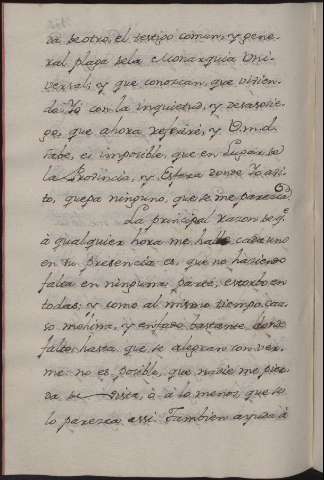 dà de otro, el testigo comun, y gene-
ral plaga de la Monarquia Uni-
versal; y que conozcan, que vivien-
do Yo con la inquietud, y desasosie-
go, que ahora referirè, y V.md.
sabe, es imposible, que en Lugar de
la Provincia, y Esfera donde Yo asis-
to, quepa ninguno, que se me parezca.
La principal razon de q.e
à qualquier hora me halle cada uno
en su presencia es, que no haciendo
falta en ninguna parte, estorbo en
todas: y como al mismo tiempo, cau-
so mohina, y enfado bastante donde
falto, hasta que se alegran con ver-
me: no es posible, que nadie me pier-
da de vista, ò à lo menos, que se
lo parezca assi. Tambien ayuda à